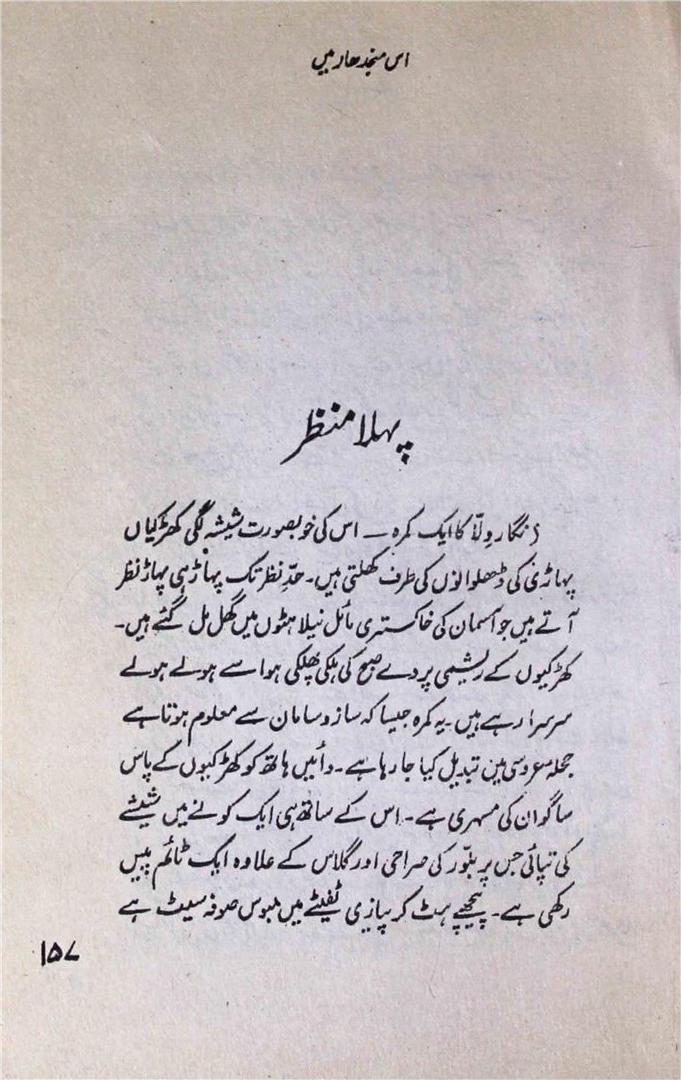 اس منجدھار میں
پہلا منظر
{نگار وِلّا کا ایک کمرہ — اس کی خوبصورت شیشہ لگی کھڑکیاں
پہاڑی کی ڈھلوانوں کی طرف کھلتی ہیں۔ حدِّ نظر تک پہاڑ ہی پہاڑ نظر
آتے ہیں جو آسمان کی خاکستری مائل نیلاہٹوں میں گھل مل گئے ہیں۔
کھڑکیوں کے ریشمی پردے صبح کی ہلکی پھلکی ہوا سے ہولے ہولے
سرسرا رہے ہیں۔ یہ کمرہ جیسا کہ ساز و سامان سے معلوم ہوتا ہے
حجلہ عروسی میں تبدیل کیا جا رہا ہے۔ دائیں ہاتھ کو کھڑکیوں کے پاس
ساگوان کی مسہری ہے۔ اس کے ساتھ ہی ایک کونے میں شیشے
کی تپائی جس پر بلّور کی صراحی اور گلاس کے علاوہ ایک ٹائم پیس
رکھی ہے۔ پیچھے ہٹ کر پیازی ٹفیٹے میں ملبوس صوفہ سیٹ ہے
۱۵۷